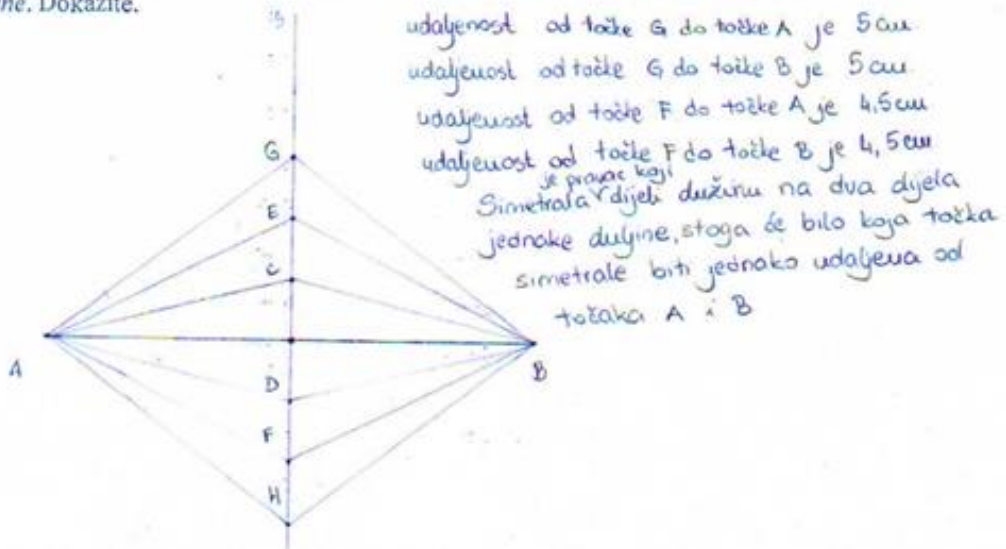 ne. Dokažite.
udaljenost od točke G do točke A je 5 cm
udaljenost od točke G do točke B je 5 cm
udaljenost od točke F do točke A je 4,5 cm
udaljenost od točke F do točke B je 4,5 cm
je pravac koji
Simetrala dijeli dužinu na dva dijela
jednake duljine, stoga će bilo koja točka
simetrale biti jednako udaljena od
točaka A i B
G
E
C
A
B
D
F
H